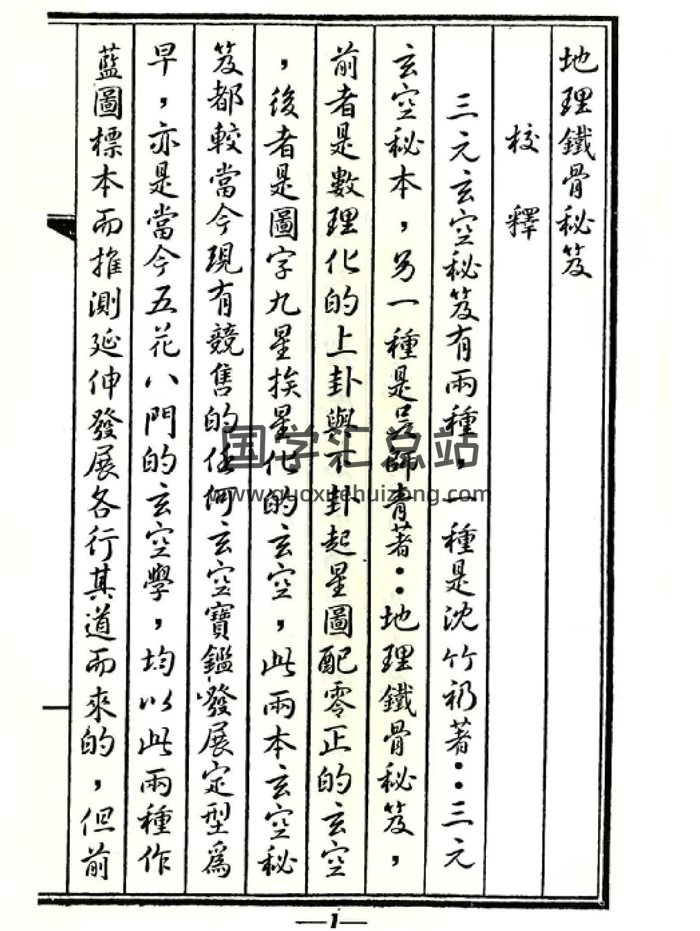 地理鐵骨秘笈
校釋
三元玄空秘笈有兩種，一種是沈竹礽著：三元
玄空秘本，另一種是吳師青著：地理鐵骨秘笈，
前者是數理化的上卦與下卦起星圖配零正的玄空
，後者是圖字九星挨星化的玄空，此兩本玄空秘
笈都較當今現有競售的任何玄空寶鑑發展定型為
早，亦是當今五花八門的玄空學，均以此兩種作
藍圖標本而推測延伸發展各行其道而來的，但前
国学汇总站
www.guoxuehuizong.com
—1—